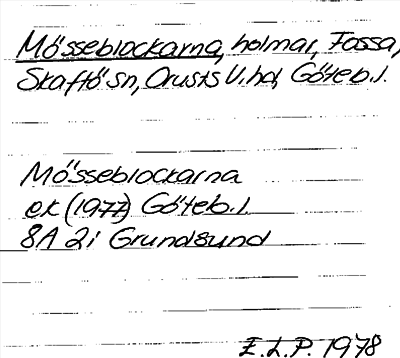 Mösseblockarna, holmar, Fossa,
Skaftö sn, Orusts V. hd, Göteb. l.
Mösseblockarna
ek (1977) Göteb. l.
8A 2i Grundsund
E.L.P. 1978